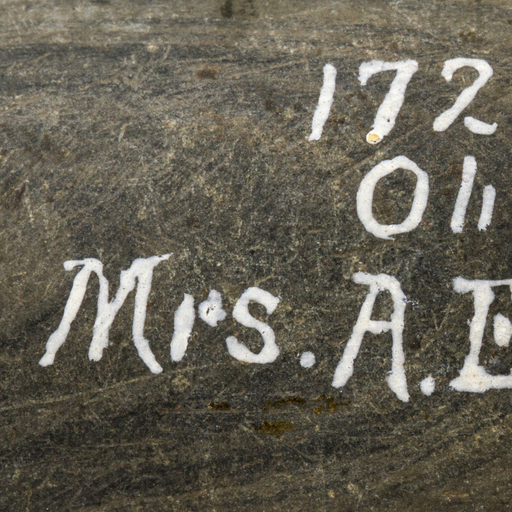 172
Oli
Mrs. A. E